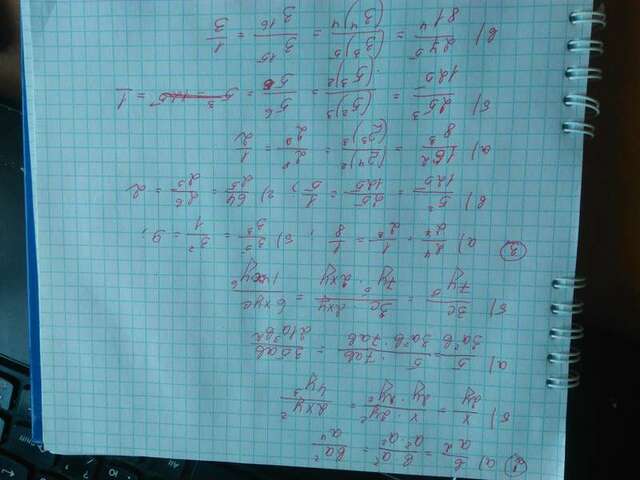 ② а) b/a² = b·a²/a²·a² = ba²/a⁴
б) x/2y = x·2y²/2y·2y² = 2xy²/4y³
а) 5/3a²b = 5·7ab/3a²b·7ab = 35ab/21a³b²
б) 3c/7y⁵ = 3c·2xy/7y⁵·2xy = 6xyc/14xy⁶
③ а) 2⁴/2⁷ = 1/2³ = 1/8; б) 3⁵/3³ = 3²/1 = 9;
в) 5²/125 = 25/125 = 1/5; г) 64/2⁵ = 2⁶/2⁵ = 2
а) 16²/8³ = (2⁴)²/(2³)³ = 2⁸/2⁹ = 1/2
б) 25³/125² = (5²)³/(5³)² = 5⁶/5⁶ = 1
в) 27⁵/81⁴ = (3³)⁵/(3⁴)⁴ = 3¹⁵/3¹⁶ = 1/3